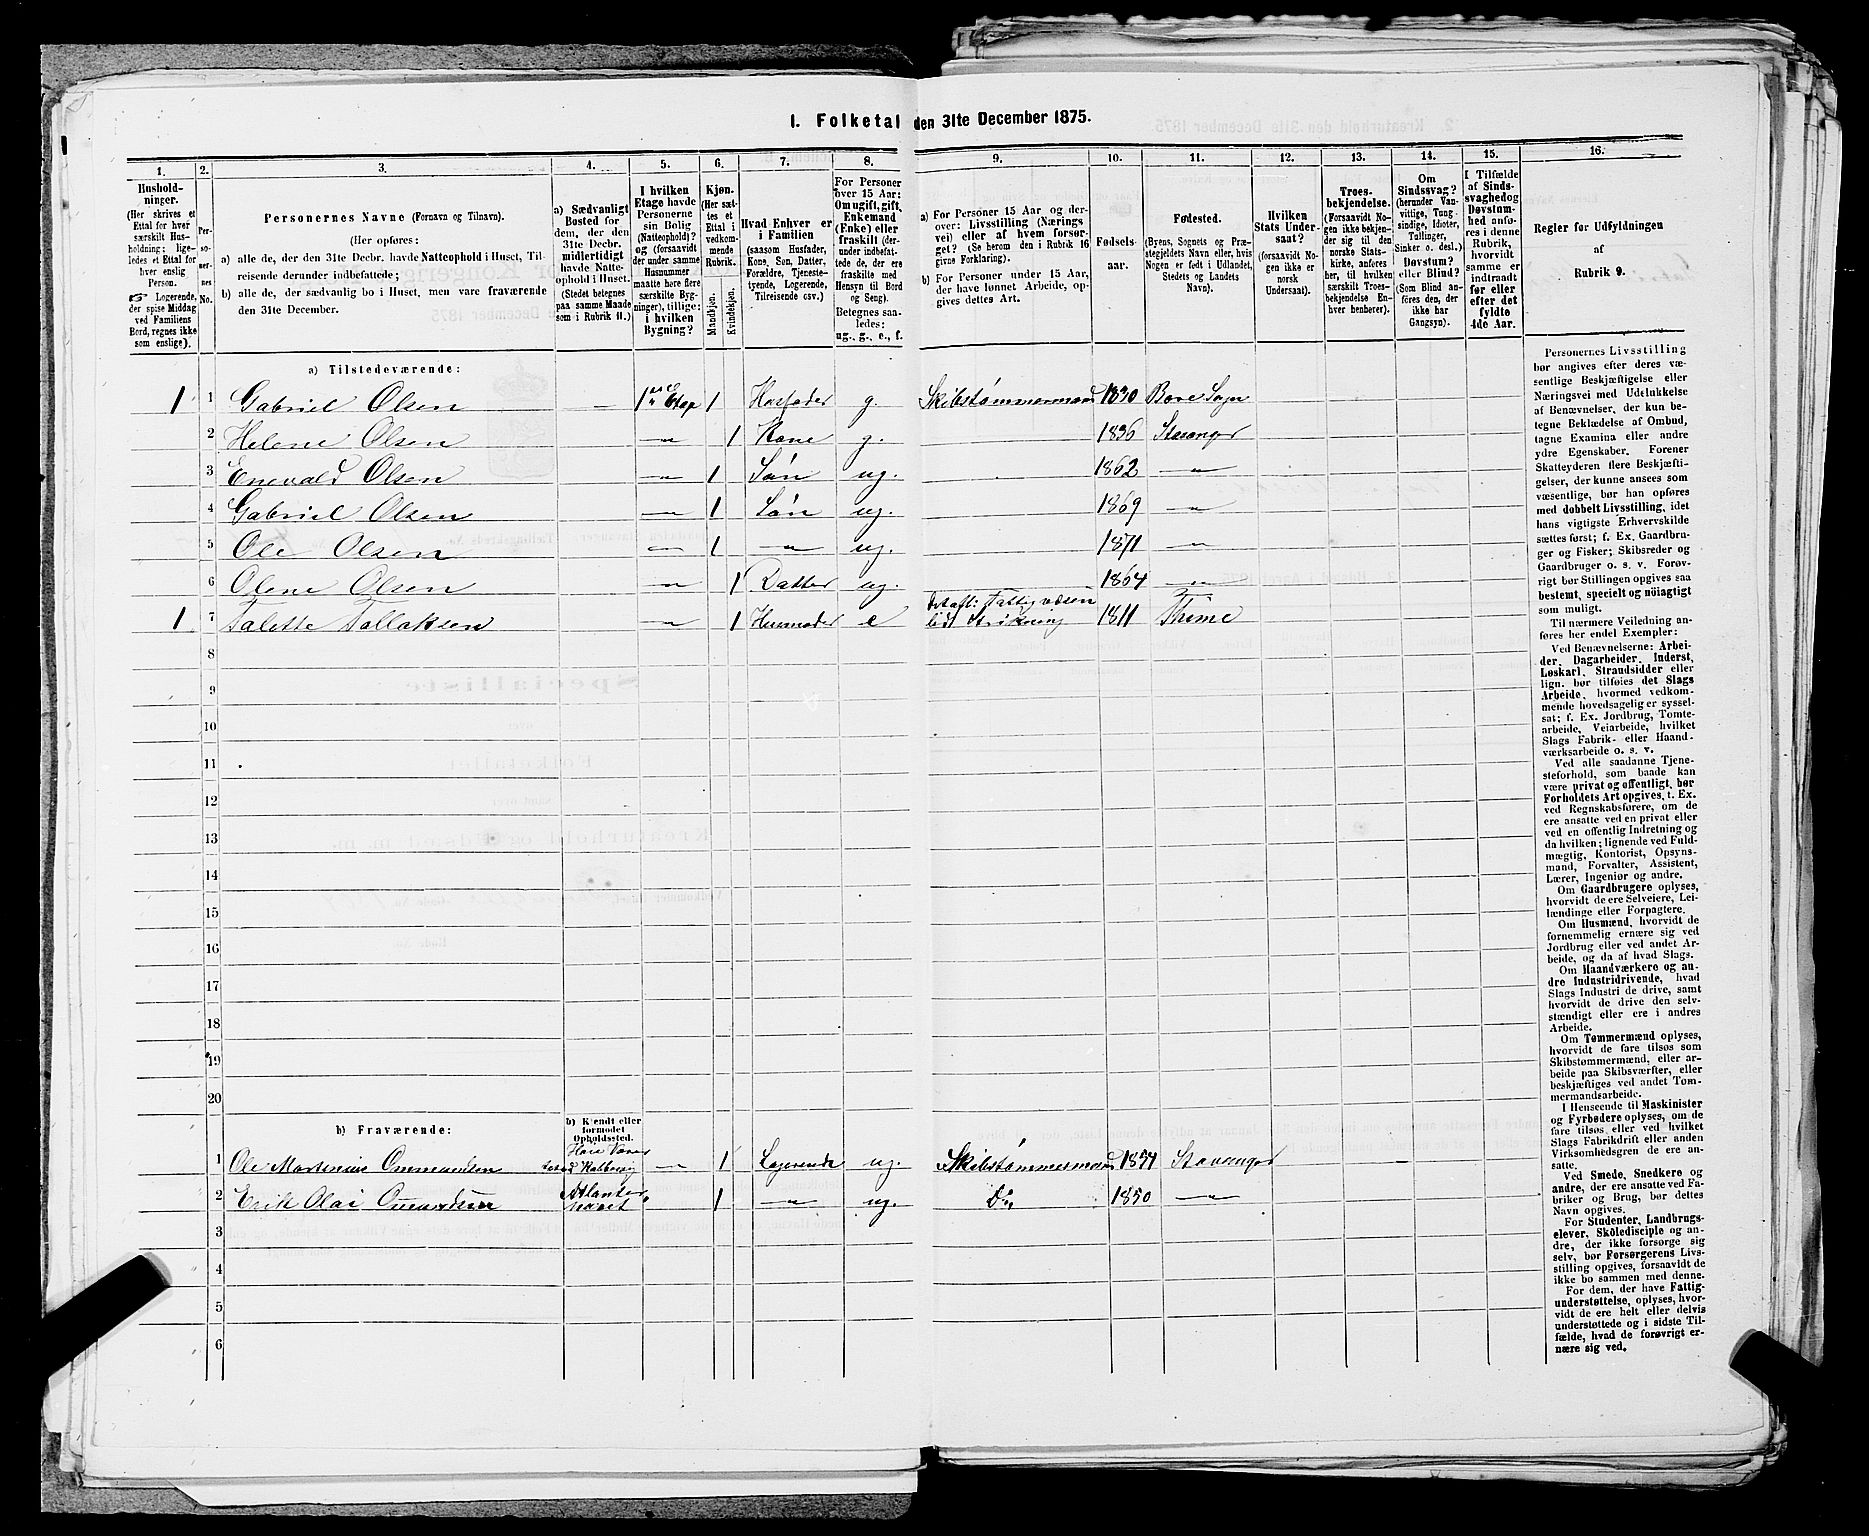 I. Folketal den 31te December 1875.
1. 2. 3. 4. 5. 6. 7. 8. 9. 10. 11. 12. 13. 14. 15. 16.
Hushold-
ninger.
(Her skrives et
Ettal for hver
særskilt Hus-
holdning; lige-
ledes et Ettal for
hver enslig
Person.
☞ Logerende,
der spise Middag
ved Familiens
Bord, regnes ikke
som enslige.)
Per-
so-
ner-
nes
No.
Personernes Navne (Fornavn og Tilnavn).
(Her opføres:
a) alle de, der den 31te Decbr. havde Natteophold i Huset, Til-
reisende derunder indbefattede;
b) alle de, der sædvanlig bo i Huset, men vare fraværende
den 31te December.
a) Sædvanligt
Bosted for
dem, der den
31te Decbr.
midlertidigt
havde Natte-
ophold i Huset.
(Stedet betegnes
paa samme Maade
som i Rubrik 11.)
I hvilken
Etage havde
Personerne
sin Bolig
(Natteophold)?
og (forsaavidt
der under samme
Husnummer
maatte høre flere
særskilte Byg-
ninger), tillige:
i hvilken
Bygning?
Kjøn.
(Her sæt-
tes et
Ettal i
vedkom-
mende
Rubrik.
Mandkjøn.
Kvindekjøn.
Hvad Enhver er
i Familien
(saasom Husfader,
Kone, Søn, Datter,
Forældre, Tjeneste-
tyende, Logerende,
Tilreisende osv.)
For Personer
over 15 Aar:
Om ugift, gift,
Enkemand
(Enke) eller
fraskilt (der-
under indbefat-
tede de, der ere
fraskilte med
Hensyn til Bord
og Seng).
Betegnes saa-
ledes:
ug., g., e., f.
a) For Personer 15 Aar og der-
over: Livsstilling (Nærings-
vei) eller af hvem forsør-
get? (Se herom den i Rubrik 16
givne Forklaring).
b) For Personer under 15 Aar,
der have lønnet Arbeide, op-
gives dettes Art.
Fødsels-
aar.
Fødested.
(Byens, Sognets og Præ-
stegjeldets Navn eller, hvis
Nogen er født i Udlandet,
Stedets og Landets
Navn).
Hvilken
Stats Under-
saat?
(forsaavidt No-
gen ikke er
norsk
Undersaat).
Troes-
bekjendelse.
(Forsaavidt No-
gen ikke bekjen-
der sig til den
norske Stats-
kirke, anføres
her, til hvilken
særskilt Troes-
bekjendelse En-
hver henhører).
Om
Sindssvag?
(herunder Van-
vittige, Tung-
sindige, Idioter,
Tullinger,
Sinker o. desl.)
Døvstum?
eller Blind?
(Som Blind an-
føres den, der
ikke har
Gangsyn).
I Tilfælde
af Sinds-
svaghed og
Døvstum-
hed anfø-
res i denne
Rubrik,
hvorvidt
samme er
indtraadt
før eller
efter det
fyldte
4de Aar.
Regler før Udfyldningen
af
Rubrik 9.
a) Tilstedeværende:
1 1 Gabriel Olsen — 1 Etag 1 Husfader g. Skibstømmermand 1830 Bore Sogn
2 Helene Olsen — 1 Kone g. 1836 Stavanger
3 Enevald Olsen — 1 Søn ug. 1862 —
4 Gabriel Olsen — 1 Søn ug. 1869 —
5 Ole Olsen — 1 — ug. 1871 —
6 Olene Olsen — 1 Datter ug. 1864 —
1 7 Talette Tallaksen — 1 Husmoder e Fattigvæsen 1811 Thime
8
9
10
11
12
13
14
15
16
17
18
19
20
b) Fraværende:
b) Kjendt eller
formodet
Opholdssted.
1 Ole Martinius Ommundsen — 1 Logerende ug. Skibstømmermand 1854 Stavanger
2 Erik Olai Atlanter havet 1 — ug. Do 1850 —
3
4
5
6
Personernes Livsstilling
bør angives efter deres væ-
sentlige Beskjæftigelse eller
Næringsvei med Udelukkelse
af Benævnelser, der kun be-
tegne Beklædelse af Ombud,
tagne Examina eller andre
ydre Egenskaber. Forener
Skatteyderen flere Beskjæfti-
gelser, der kunne ansees som
væsentlige, bør han opføres
med dobbelt Livsstilling, idet
hans vigtigste Erhvervskilde
sættes først; f. Ex. Gaardbru-
ger og Fisker; Skibsreder og
Gaardbruger o. s. v. Forøv-
rigt bør Stillingen opgives saa
bestemt, specielt og nøiagtigt
som muligt.
Til nærmere Veiledning an-
føres her endel Exempler:
Ved Benævnelserne: Arbei-
der, Dagarbeider, Inderst,
Løskarl, Strandsidder eller
lign. bør tilføies det Slags
Arbeide, hvormed vedkom-
mende hovedsagelig er syssel-
sat; f. Ex. Jordbrug, Tomte-
arbeide, Veiarbeide, hvilket
Slags Fabrik- eller Haand-
værksarbeide o. s. v.
Ved alle saadanne Tjene-
steforhold, som baade kan
være privat og offentligt, bør
Forholdets Art opgives, t. Ex.
ved Regnskabsførere, om de
ere ansatte ved en privat eller
ved en offentlig Indretning og
da hvilken; lignende ved Fuld-
mægtig, Kontorist, Opsyns-
mand, Forvalter, Assistent,
Lærer, Ingeniør og andre.
Om Gaardbrugere oplyses,
hvorvidt de ere Selveiere, Lei-
lændinge eller Forpagtere.
Om Husmænd, hvorvidt de
fornemmelig ernære sig ved
Jordbrug eller ved andet Ar-
beide, og da af hvad Slags.
Om Haandværkere og an-
dre Industridrivende, hvad
Slags Industri de drive, samt
hvorvidt de drive den selv-
stændigt eller ere i andres
Arbeide.
Om Tømmermænd oplyses,
hvorvidt de fare tilsøs som
Skibstømmermænd, eller ar-
beide paa Skibsværfter, eller
beskjæftiges ved andet Tøm-
mermandsarbeide.
I Henseende til Maskinister
og Fyrbødere oplyses, om de
fare tilsøs, eller ved hvilket
Slags Fabrikdrift eller anden
Virksomhedsgren de ere an-
satte.
Ved Smede, Snedkere og
andre, der ere ansatte ved Fa-
briker og Brug, bør dettes
Navn opgives.
For Studenter, Landbrugs-
elever, Skoledisciple og an-
dre, der ikke forsørge sig
selv, bør Forsørgerens Livs-
stilling opgives, forsaavidt de
ikke bo sammen med denne.
For dem, der have Fattig-
understøttelse, oplyses, hvor-
vidt de ere helt eller delvis
understøttede og i sidste Til-
fælde, hvad de forøvrigt er-
nære sig ved.